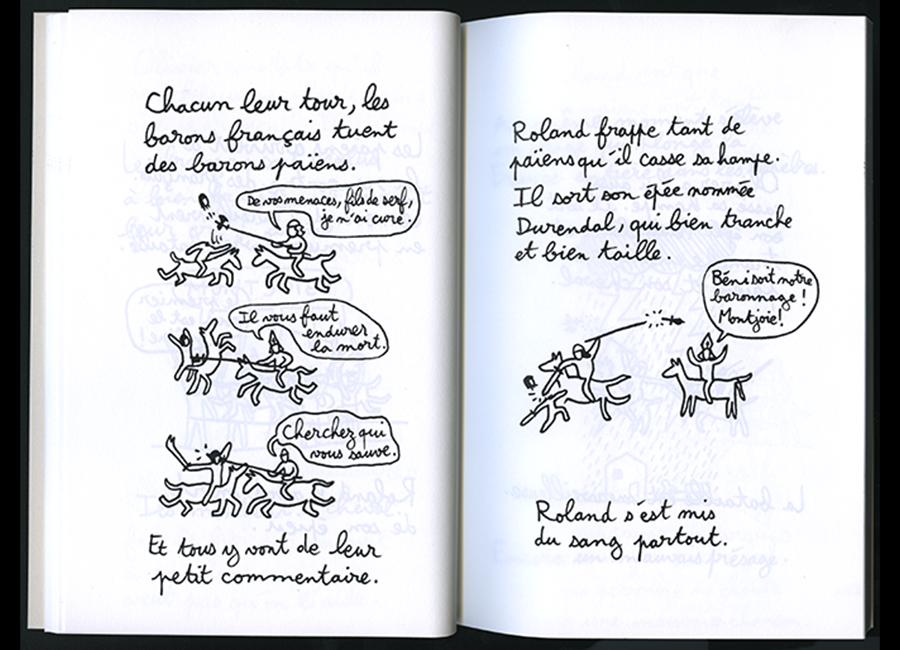 Chacun leur tour, les
barons français tuent
des barons païens.
De vos menaces, fils de serf,
je n'ai cure.
Il vous faut
endurer
la mort.
Cherchez qui
vous sauve.
Et tous y vont de leur
petit commentaire.
Roland frappe tant de
païens qu'il casse sa hampe.
Il sort son épée nommée
Durendal, qui bien tranche
et bien taille.
Béni soit notre
baronnage !
Montjoie !
Roland s'est mis
du sang partout.